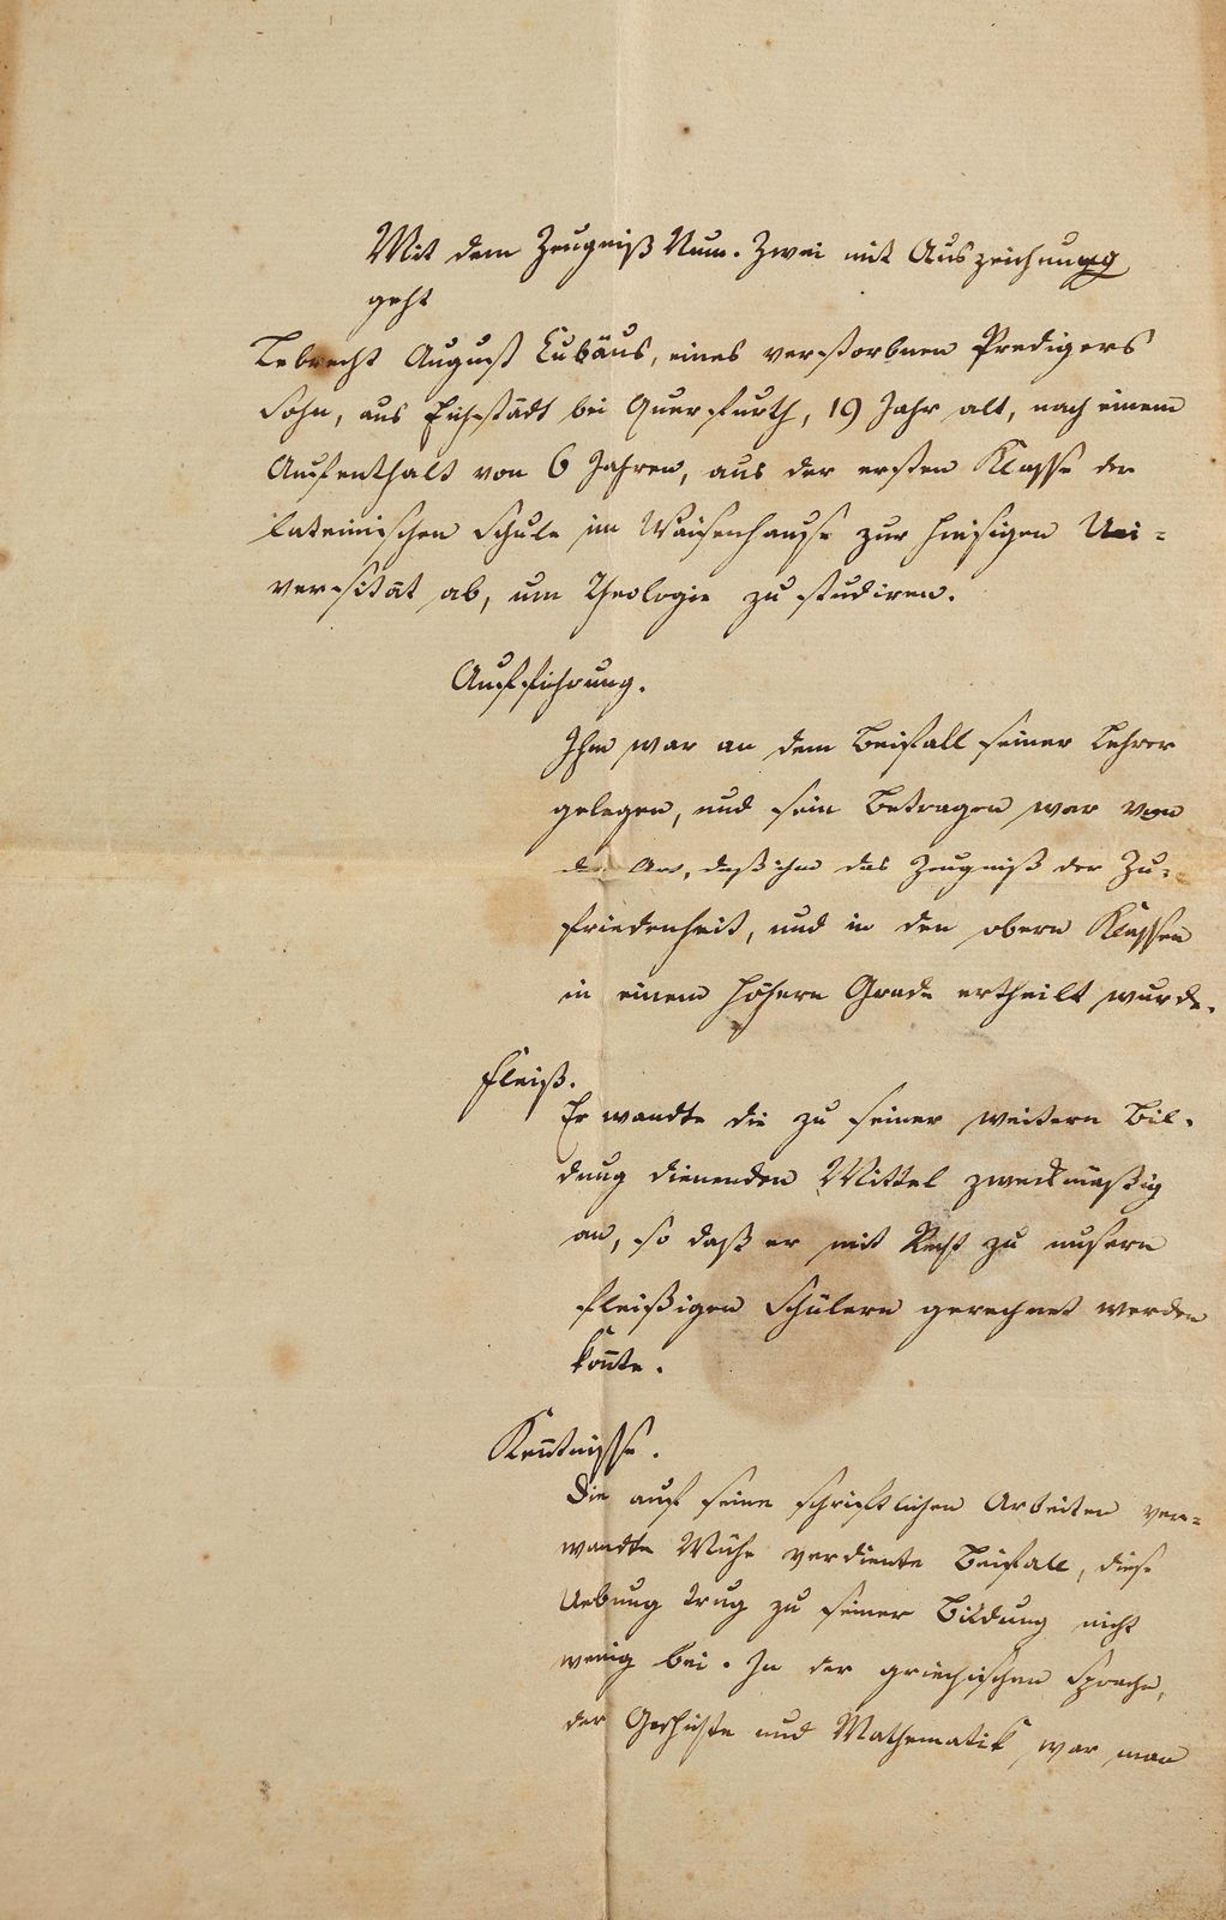 Mit dem Zeugniß Num. Zwei mit Auszeichnung
geht
Lebrecht August Lubäus, eines verstorbnen Predigers
Sohn, aus Eichstädt bei Querfurth, 19 Jahr alt, nach einem
Aufenthalt von 6 Jahren, aus der ersten Klasse der
lateinischen Schule im Waisenhause zur hiesigen Uni=
versität ab, um Theologie zu studiren.
Aufführung.
Ihm war an dem Beifall seiner Lehrer
gelegen, und sein Betragen war von
der Art, daß ihm das Zeugniß der Zu=
friedenheit, und in den obern Klassen
in einem höhern Grade ertheilt wurde.
Fleiß.
Er wandte die zu seiner weitern Bil=
dung dienenden Mittel zweckmäßig
an, so daß er mit Recht zu unsern
fleißigen Schülern gerechnet werden
kon̄te.
Ken̄tnisse.
Die auf seine schriftlichen Arbeiten ver=
wandte Mühe verdiente Beifall, diese
Uebung trug zu seiner Bildung nicht
wenig bei. In der griechischen Sprache,
der Geschichte und Mathematik war man